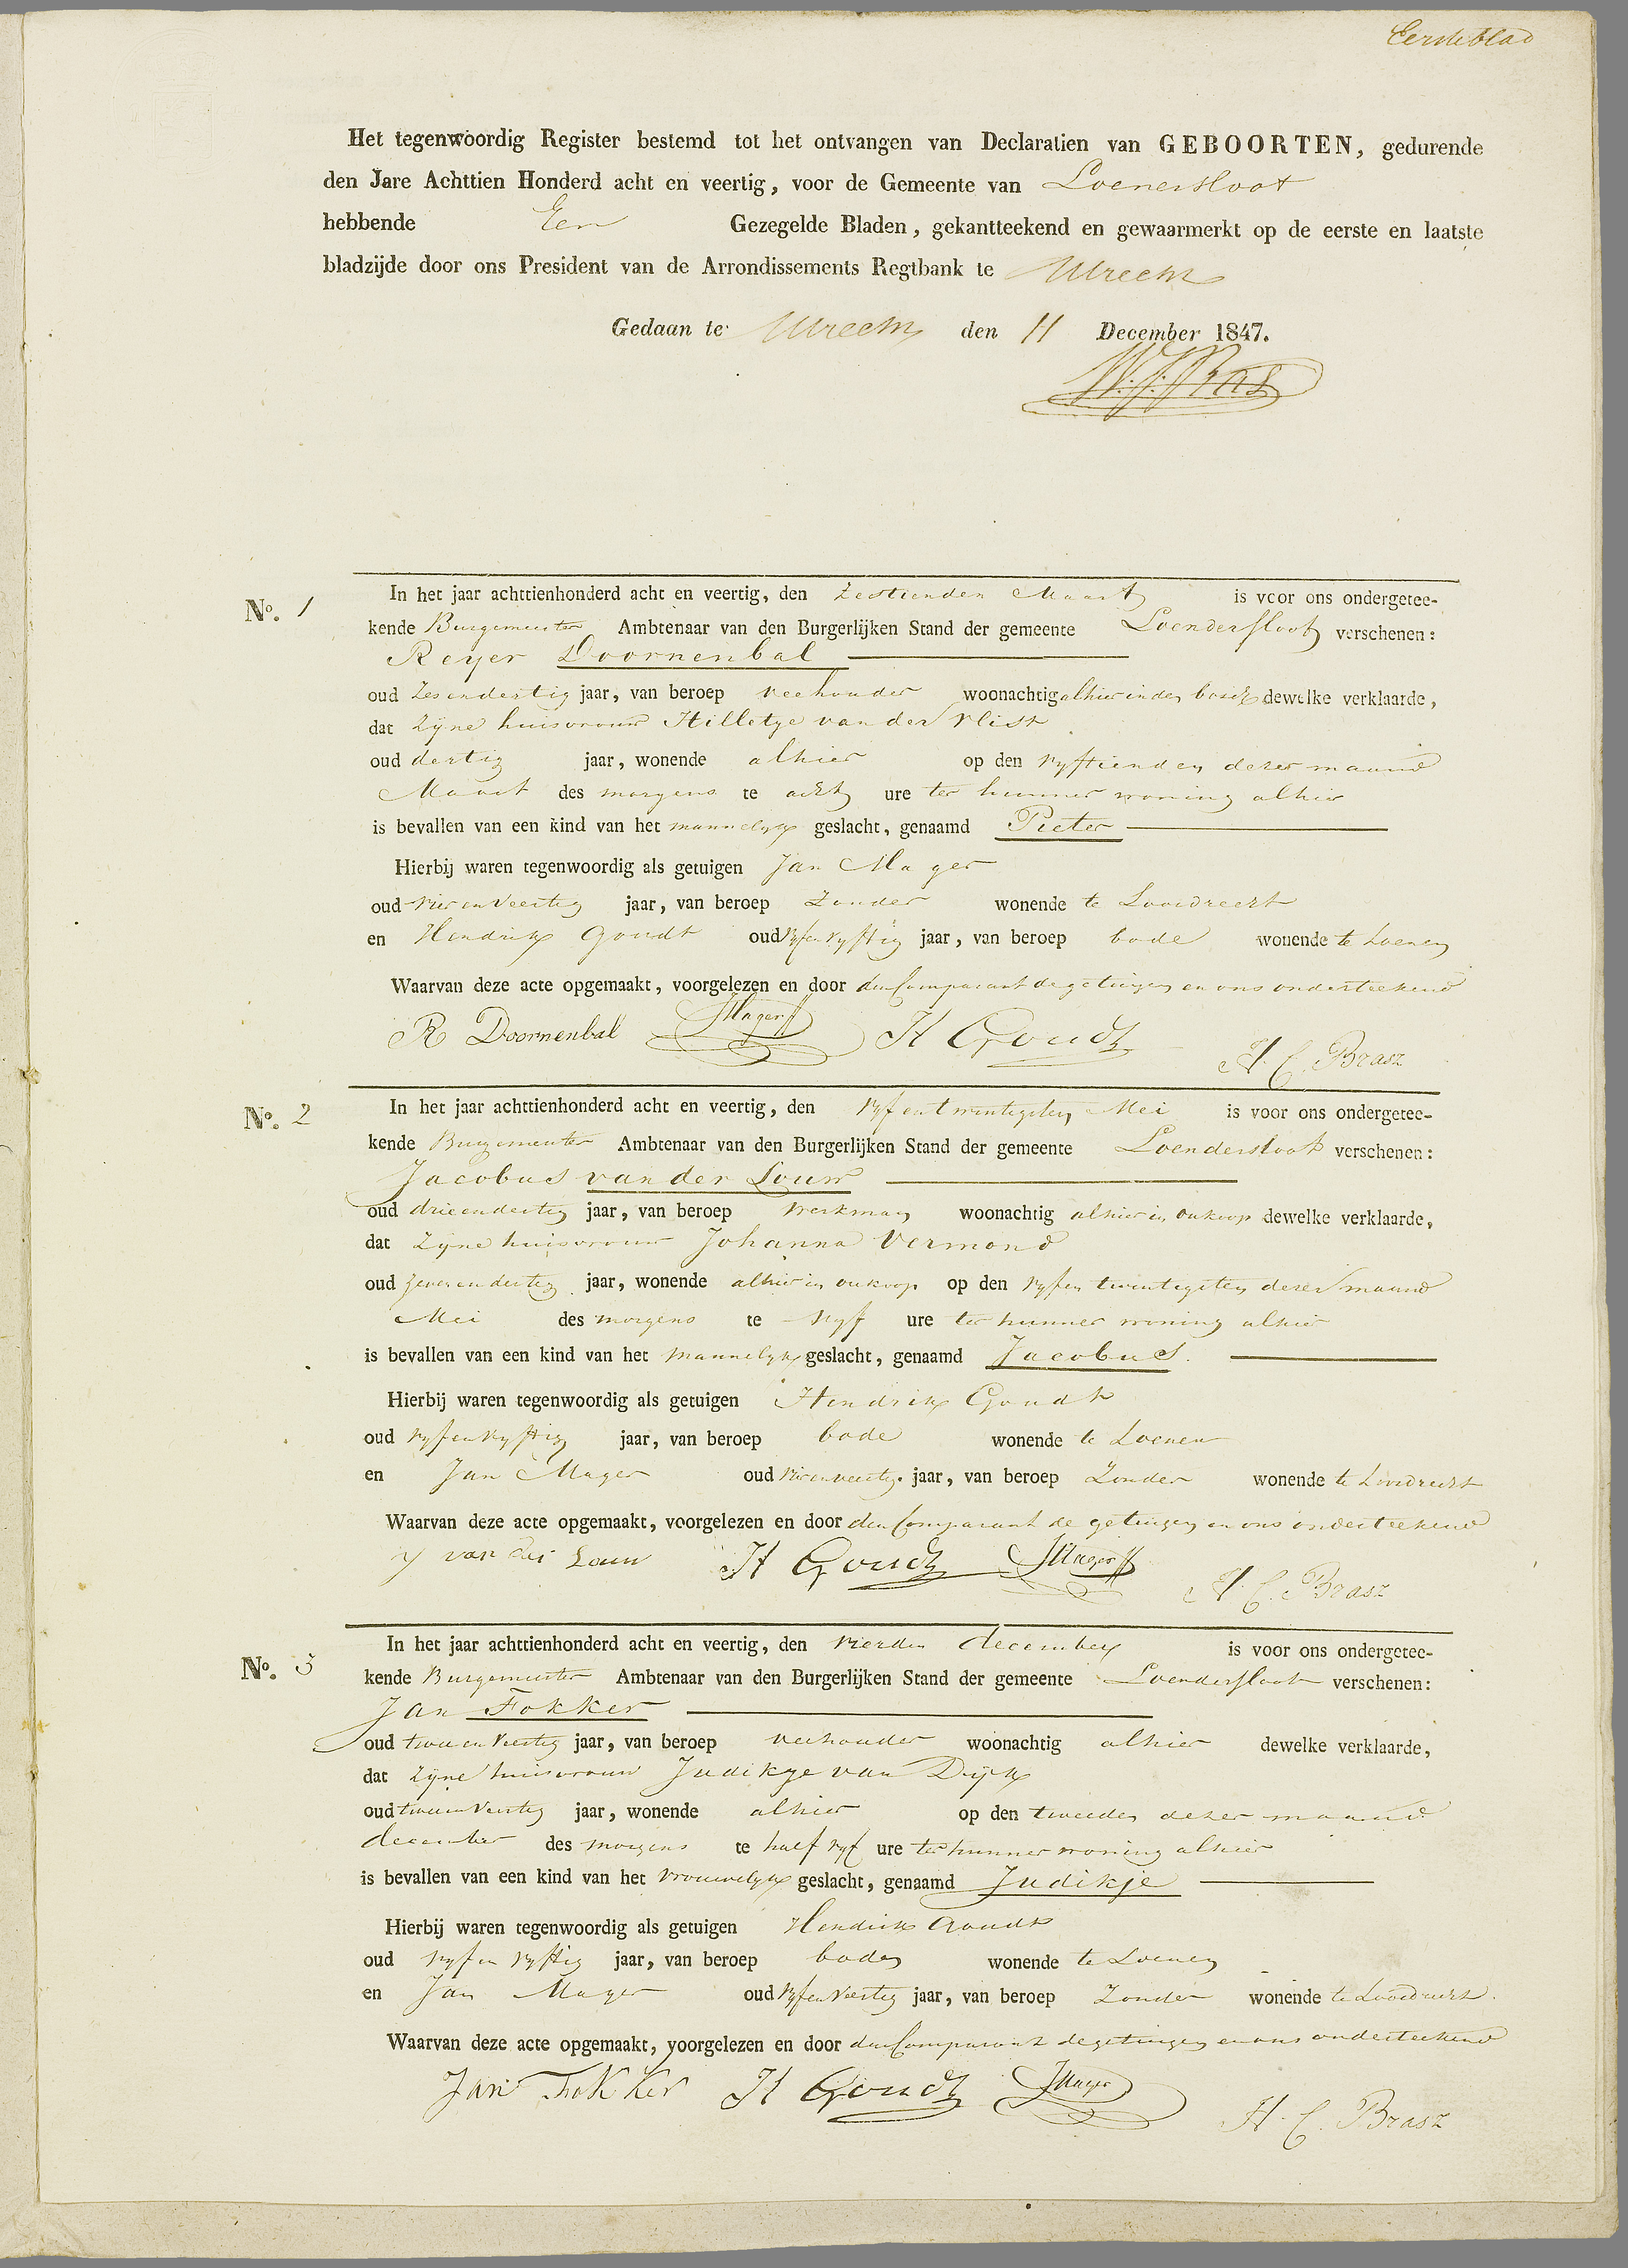 Eersteblad
Het tegenwoordig Register bestemd tot het ontvangen van Declaratien van GEBOORTEN, gedurende
den Jare Achttien Honderd acht en veertig, voor de Gemeente van Loenersloot
hebbende Een Gezegelde Bladen, gekantteekend en gewaarmerkt op de eerste en laatste
bladzijde door ons President van de Arrondissements Regtbank te Utrecht
Gedaan te Utrecht den 11 December 1847.
No. 1
In het jaar achttienhonderd acht en veertig, den Zestienden Maart is voor ons ondergetee-
kende Burgemeester Ambtenaar van den Burgerlijken Stand der gemeente Loendersloot verschenen:
Reyer Doornenbal
oud Zesendertig jaar, van beroep veehouder woonachtig alhier in den bosch dewelke verklaarde,
dat zijne huisvrouw Hilletje van der Vlist
oud dertig jaar, wonende alhier op den vyftienden dezer maand
Maart des morgens te acht ure ter hunner woning alhier
is bevallen van een kind van het mannelyk geslacht, genaamd Pieter
Hierbij waren tegenwoordig als getuigen Jan Mager
oud vier en veertig jaar, van beroep Zonder wonende te Loosdrecht
en Hendrik Goudt oud vyfenvyftig jaar, van beroep bode wonende te Loenen
Waarvan deze acte opgemaakt, voorgelezen en door den Comparant de getuigen en ons onderteekend
R Doornenbal JMager H Goudt H. C. Brasz
No. 2
In het jaar achttienhonderd acht en veertig, den vyf en twintigsten Mei is voor ons ondergetee-
kende Burgemeester Ambtenaar van den Burgerlijken Stand der gemeente Loendersloot verschenen:
Jacobus van der Louw
oud drieendertig jaar, van beroep Werkman woonachtig alhier in oukoop dewelke verklaarde,
dat Zijne huisvrouw Johanna Vermond
oud zevenendertig jaar, wonende alhier in oukoop op den vyfen twintigsten dezer maand
Mei des morgens te vyf ure ter hunner woning alhier
is bevallen van een kind van het Mannelyk geslacht, genaamd Jacobus.
Hierbij waren tegenwoordig als getuigen Hendrik Goudt
oud vyfenvyftig jaar, van beroep bode wonende te Loenen
en Jan Mager oud vierenveertig jaar, van beroep Zonder wonende te Loosdrecht
Waarvan deze acte opgemaakt, voorgelezen en door den Comparant de getuigen en ons onderteekend
J van der Louw H Goudt JMager H. C. Brasz
No. 3
In het jaar achttienhonderd acht en veertig, den vierden december is voor ons ondergetee-
kende Burgemeester Ambtenaar van den Burgerlijken Stand der gemeente Loendersloot verschenen:
Jan Fokker
oud twee en veertig jaar, van beroep veehouder woonachtig alhier dewelke verklaarde,
dat zijne huisvrouw Judikje van Dijk
oud tweeenveertig jaar, wonende alhier op den tweeden dezer maand
december des morgens te half vyf ure ter hunner woning alhier
is bevallen van een kind van het vrouwelyk geslacht, genaamd Judikje
Hierbij waren tegenwoordig als getuigen Hendrik Goudt
oud vyf en vyftig jaar, van beroep bode wonende te Loenen
en Jan Mager oud vyfenveertig jaar, van beroep Zonder wonende te Loosdrecht
Waarvan deze acte opgemaakt, voorgelezen en door den Comparant de getuigen en ons onderteekend
Jan Fokker H Goudt JMager H. C. Brasz